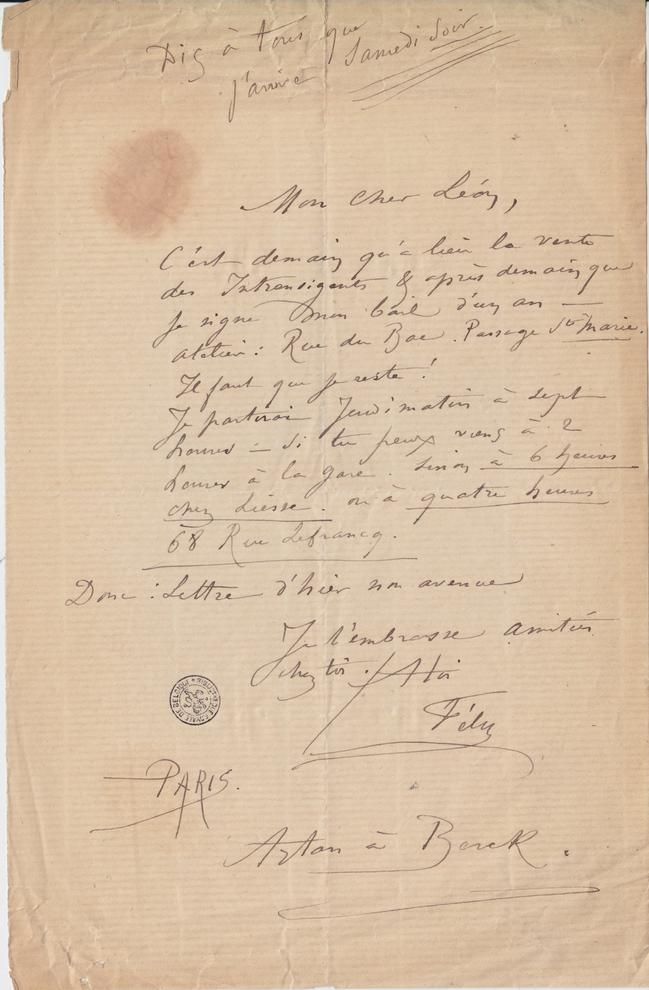 Dis à tous que
j'arrive Samedi Soir.
Mon cher Léon,
C'est demain qu'a lieu la vente
des Intransigents & après demain que
je signe mon bail d'un an —
atelier : Rue du Bac. Passage Ste Marie.
Il faut que je reste !
Je partirai Jeudi matin à sept
heures — si tu peux viens à 2
heures à la gare. Sinon à 6 heures
chez Liesse. ou à quatre heures
68 Rue Lefrancq.
Donc : Lettre d'hier non avenue
Je t'embrasse amitiés
chez toi. à toi
Fély
BIBLIOTHÈQUE ROYALE DE BELGIQUE
PARIS.
à Berck.